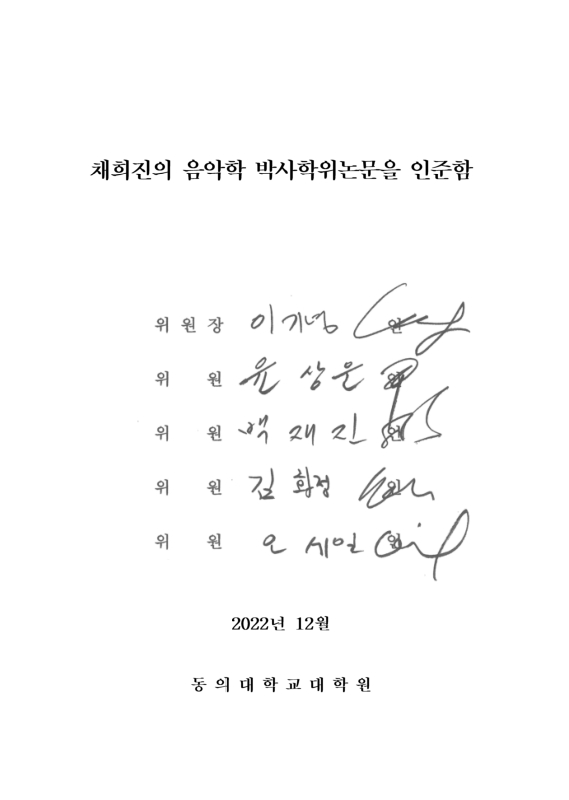 채희진의 음악학 박사학위논문을 인준함
위 원 장 이기녕 인
위 원 윤상운 인
위 원 백재진 인
위 원 김화정 인
위 원 오세일 인
2022년 12월
동 의 대 학 교 대 학 원